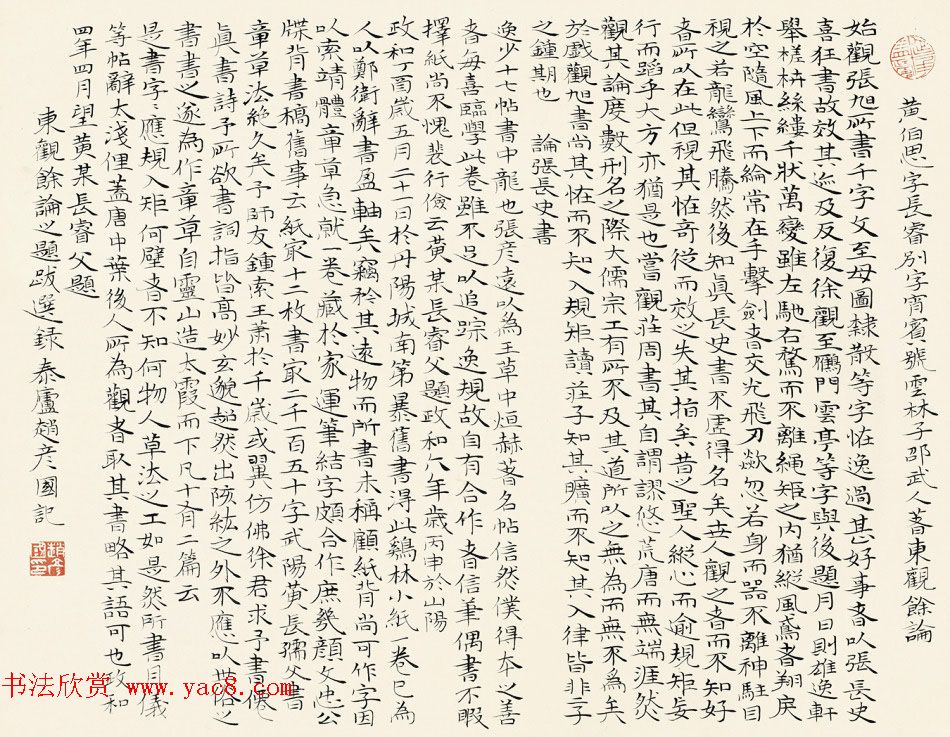 黄伯思字長睿別字宵賓號雲林子邵武人著東觀餘論
始觀張旭所書千字文至母圖隸散等字怪逸過甚好事者以張長史
喜狂書故效其迹及反復徐觀至鴈門雲亭等字與後題月日則雄逸軒
舉槎枿絲縷千狀萬變雖左馳右騖而不離繩矩之內猶縱風鳶者翔戾
於空隨風上下而綸常在手擊劍者交光飛刃歘忽若身而器不離神駐目
視之若龍鸞飛騰然後知真長史書不虛得名矣世人觀之者而不知好
者所以在此但視其怪奇從而效之失其指矣昔之聖人縱心而逾規矩妄
行而蹈乎大方亦猶是也嘗觀莊周書其自謂謬悠荒唐而無端涯然
觀其論度數刑名之際大儒宗工有所不及其道所以之無為而無不為矣
於戲觀旭書尚其怪而不知入規矩讀莊子知其曠而不知其入律皆非二子
之鍾期也 論張長史書
逸少十七帖書中龍也張彦遠以為王草中烜赫著名帖信然僕得本之善
者每喜臨學此卷雖不足以追踪逸規故自有合作者信筆偶書不暇
擇紙尚不愧裴行儉云黄某長睿父題政和六年歲丙申於山陽
政和丁酉歲五月二十一日於丹陽城南第暴舊書得此鷄林小紙一卷已為
人以鄭衛辭書盈軸矣竊矜其遠物而所書未稱顧紙背尚可作字因
以索靖體章草急就一卷藏於家運筆結字頗合作庶幾顏文忠公
牒背書槁舊事云紙冣十二枚書冣二千一百五十字武陽黄長孺父書
章草法絶久矣予師友鍾索王蕭於千歲或翼仿佛徐君求予書倦
真書詩予所欲書詞指皆高妙玄邈超然出陔紘之外不應以世俗之
書書之遂為作章草自靈山造太霞而下凡十有二篇云
是書字字應規入矩何壁者不知何物人草法之工如是然所書目儀
等帖辭太淺俚蓋唐中葉後人所為觀者取其書略其語可也政和
四年四月望黄某長睿父題
東觀餘論之題跋選錄 泰廬趙彦國記
书法欣赏 www.yac8.com